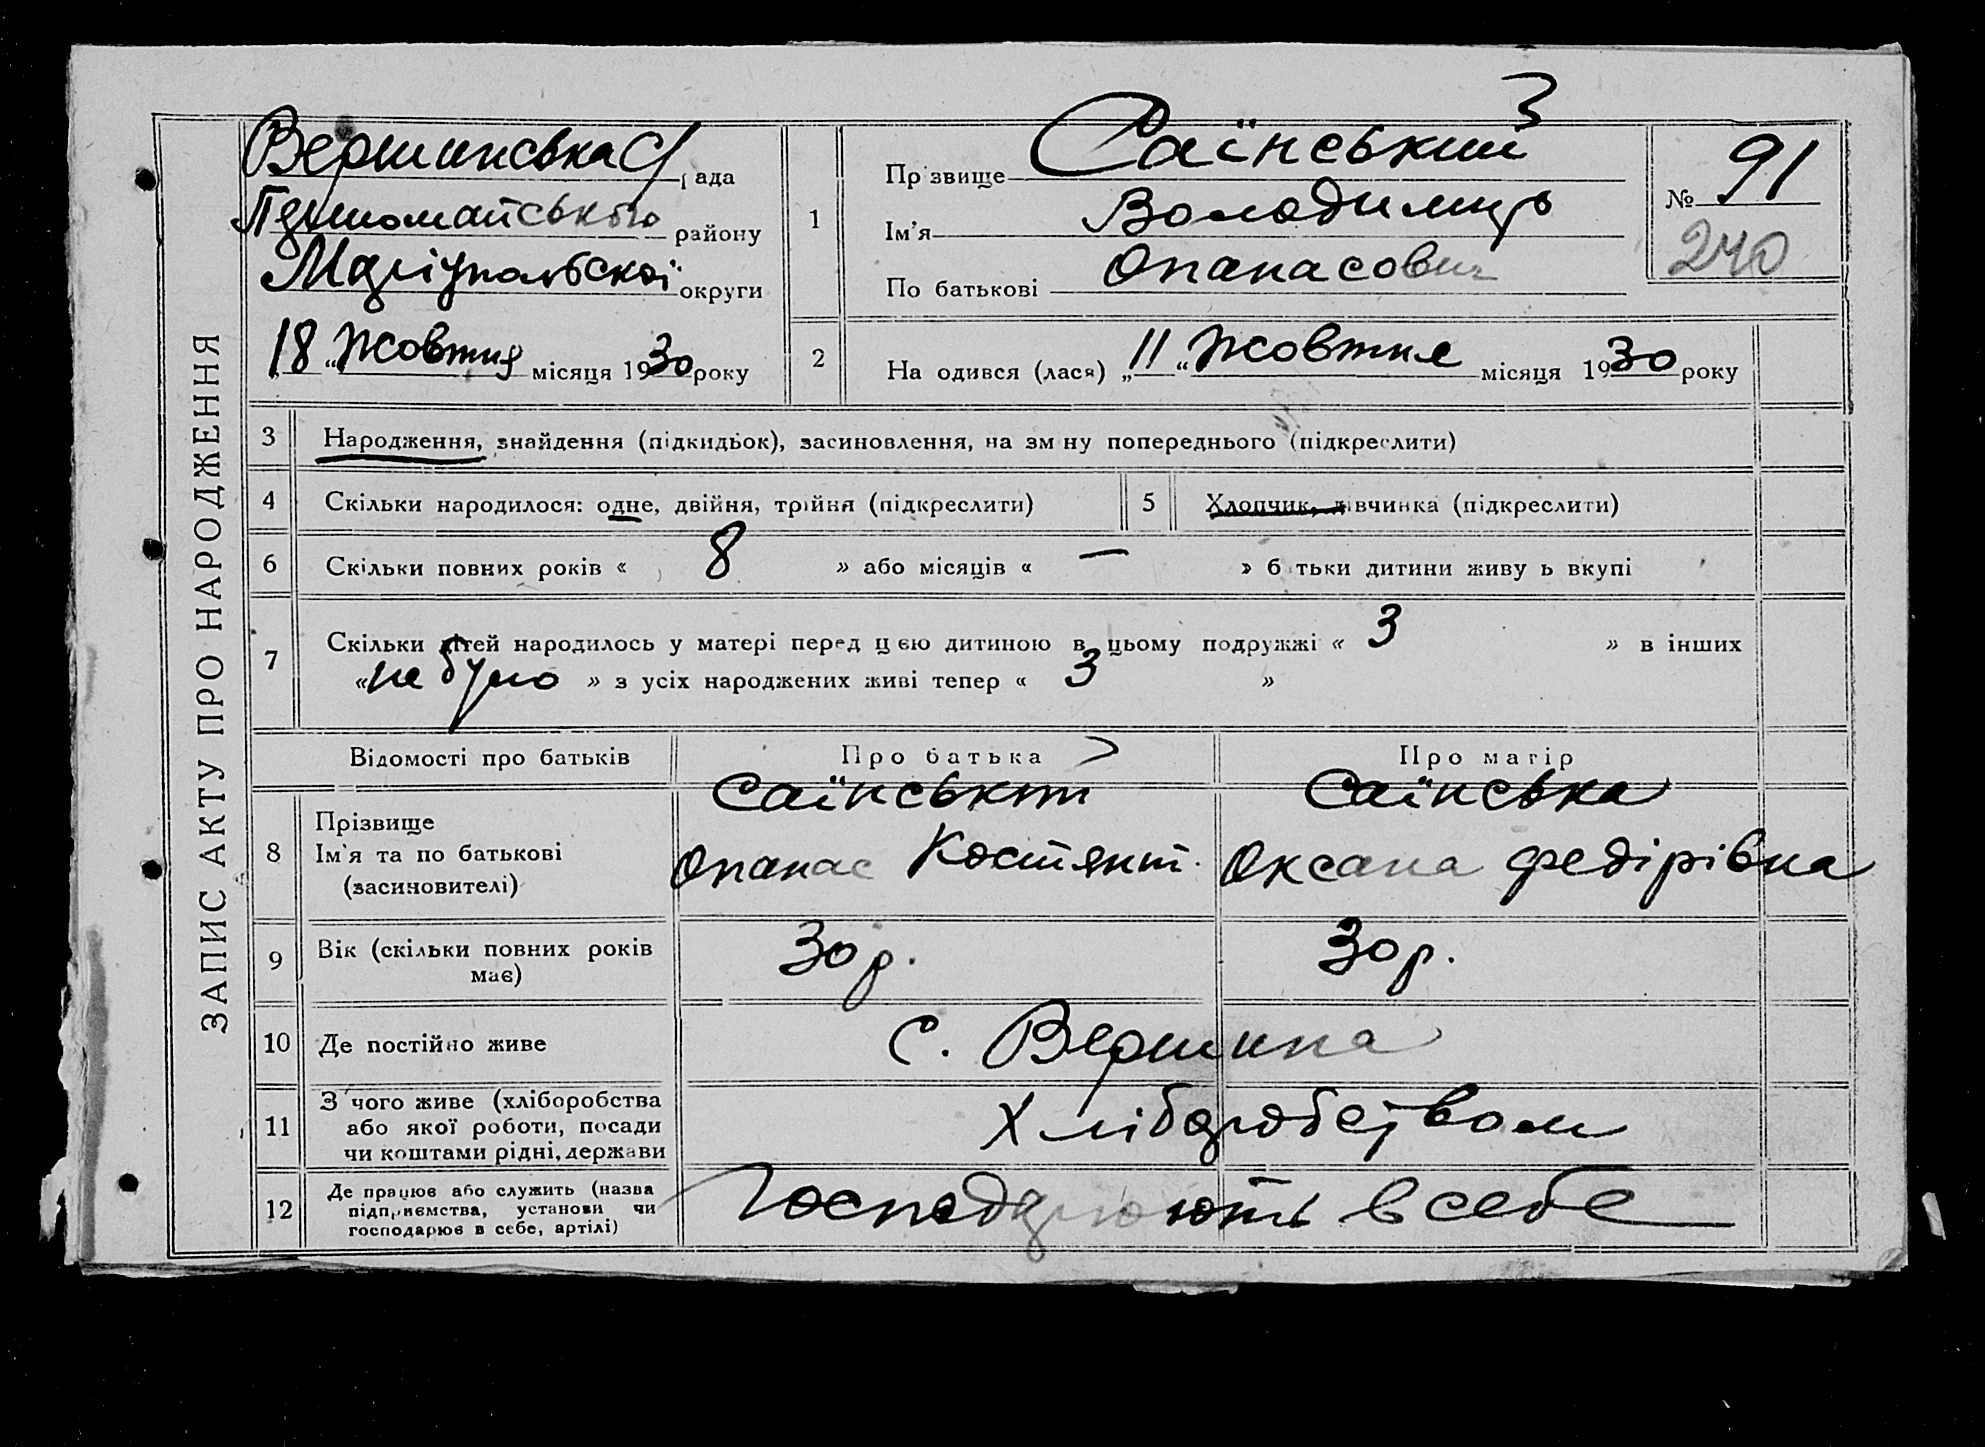 ЗАПИС АКТУ ПРО НАРОДЖЕННЯ
Вершинська с/рада
Першомайського району
Маріупольської округи
18 "Жовтня місяця 1930 року
1
Пр звище Саїнський
Ім'я Володимир
По батькові Опанасович
№ 91
240
2
На одився (лася) „11 "Жовтня місяця 1930 року
3 Народження, знайдення (підкидьок), засиновлення, на зм ну попереднього (підкреслити)
4 Скільки народилося: одне, двійня, трійня (підкреслити)
5 Хлопчик, дівчинка (підкреслити)
6 Скільки повних років « 8 » або місяців « — » б тьки дитини живу ь вкупі
7 Скільки дітей народилось у матері перед цією дитиною в цьому подружжі « 3 » в інших
«не було » з усіх народжених живі тепер « 3 »
Відомості про батьків Про батька Про матір
8 Прізвище
Ім'я та по батькові
(засиновителі)
Саїнський
Опанас Костянт.
Саїнська
Оксана Федірівна
9 Вік (скільки повних років
має)
30 р. 30 р.
10 Де постійно живе с. Вершина
11 З чого живе (хліборобства
або якої роботи, посади
чи коштами рідні, держави
Хліборобством
12 Де працює або служить (назва
підприємства, установи чи
господарює в себе, артілі)
Господарюють в себе